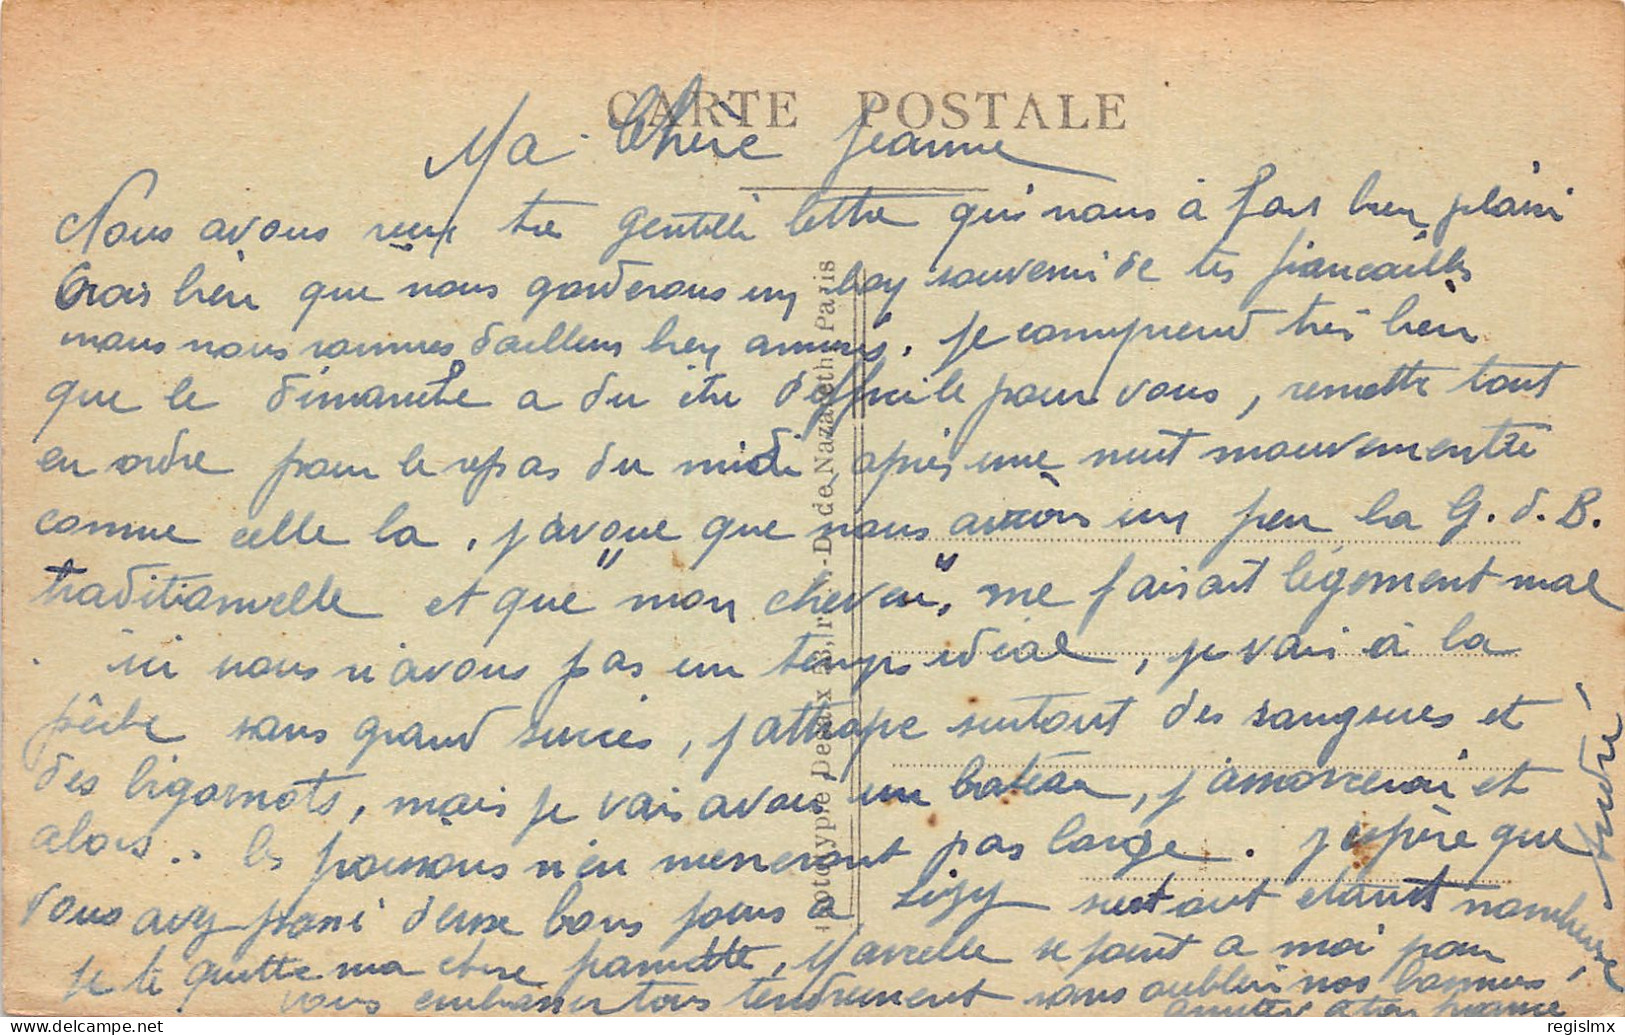 CARTE POSTALE
Ma Chère Jeanne
Nous avons reçu ta gentille lettre qui nous à fait bien plaisir
Crois bien que nous garderons un bon souvenir de tes fiançailles
nous nous sommes d'ailleurs bien amusés. Je comprend très bien
que le dimanche a du être difficile pour vous, remettre tout
en ordre pour le repas du midi après une nuit mouvementée
comme celle la, j'avoue que nous avions un peu la G. d. B.
traditionnelle et que "mon cheveu", me faisait légèrement mal
ici nous n'avons pas un temps idéal, je vais à la
pêche sans grand succès, j'attrape surtout des sangsues et
des bigornots, mais je vais avoir un bateau, j'amorcerai et
alors.. les poissons n'en meneront pas large. J'espère que
vous avez passé deux bons jours a Lizy surtout étant nombreux
Je te quitte ma chère, Marcelle se joint a moi pour
vous embrasser tous tendrement sans oublier nos bonnes
amitiés a ton fiancé
André
Phototypie Desaix Paris